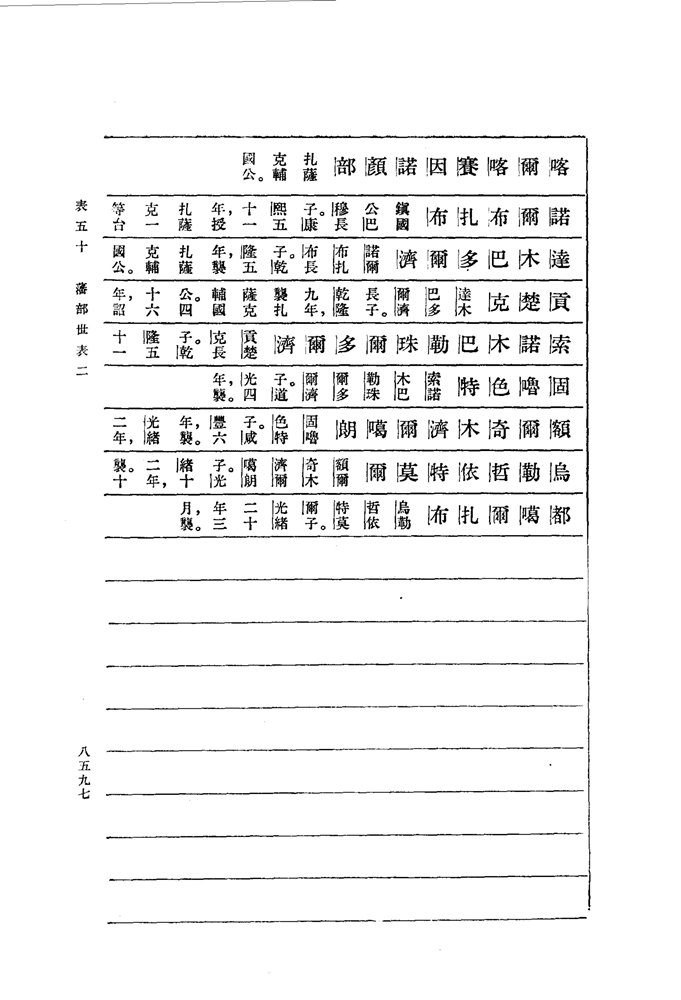 喀爾喀賽因諾顏部扎薩克輔國公。
諾爾布扎布鎮國公巴穆長子。康熙五十一年,授扎薩克一等台
達木巴多爾濟諾爾布扎布長子。乾隆五年,襲扎薩克輔國公。
貢楚克達木巴多爾濟長子。乾隆九年,襲扎薩克輔國公。四十六年,詔
索諾木巴勒珠爾多爾濟貢楚克長子。乾隆五十一
固嚕色特索諾木巴勒珠爾多爾濟子。道光四年,襲。
額爾奇木濟爾噶朗固嚕色特子。咸豐六年,襲。光緒二年,
烏勒哲依特莫爾額爾奇木濟爾噶朗子。光緒十二年,襲。十
都噶爾扎布烏勒哲依特莫爾子。光緒二十年三月,襲。
表五十 藩部世表二
八五九七